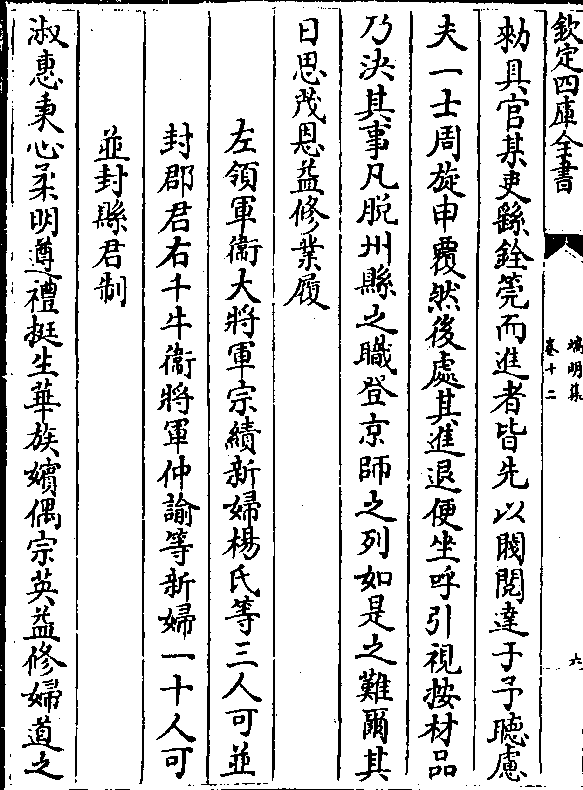 欽定四庫全書
端明集
卷十二
六
勑具官某吏繇銓筦而進者皆先以閥閱達于予聴慮
夫一士周旋申覆然後處其進退便坐呼引視按材品
乃決其事凡脱州縣之職登京師之列如是之難爾其
日思茂恩益修業履
左領軍衞大將軍宗績新婦楊氏等三人可並
封郡君右千牛衞將軍仲諭等新婦一十人可
並封縣君制
淑惠秉心柔明遵禮挺生華族嬪偶宗英益修婦道之